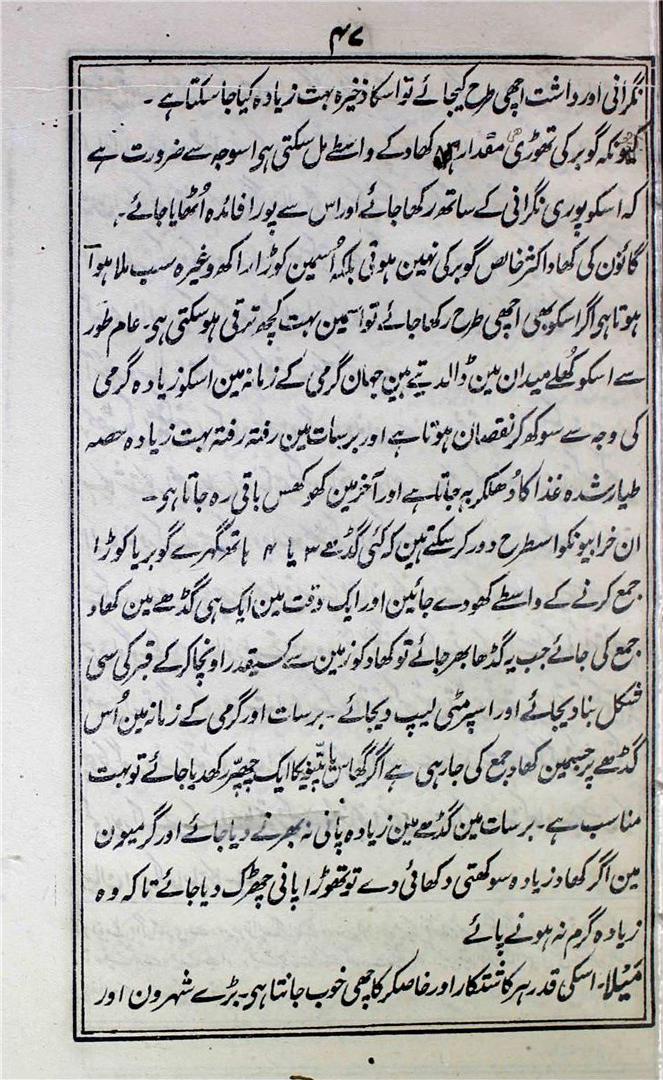 ۴۷
نگرانی اور داشت اچھی طرح کیجائے تو اسکا ذخیرہ بہت زیادہ کیا جا سکتا ہے ۔
کیونکہ گوبر کی تھوڑی ہی مقدار کھاد کے واسطے مل سکتی ہی اسوجہ سے ضرورت ہے
کہ اسکو پوری نگرانی کے ساتھ رکھا جائے اور اس سے پورا فائدہ اُٹھایا جائے ۔
گائون کی کھاد اکثر خالص گوبر کی نہین ہوتی بلکہ اُسمین کوڑا راکھ وغیرہ سب ملا ہوا
ہوتا ہی اگر اسکو بھی اچھی طرح رکھا جائے تو اسمین بہت کچھ ترقی ہو سکتی ہی ۔ عام طور
سے اسکو کُھلے میدان مین ڈالدیتے ہین جہان گرمی کے زمانہ مین اسکو زیادہ گرمی
کی وجہ سے سوکھ کر نقصان ہوتا ہے اور برسات مین رفتہ رفتہ بہت زیادہ حصہ
طیار شدہ غذا کا دُھلکر بہ جاتا ہے اور آخر مین کھوکھس باقی رہ جاتا ہی ۔
ان خرابیونکو اسطرح دور کر سکتے ہین کہ کئی گڈھے ۳ یا ۴ ہاتھ گہرے گوبر یا کوڑا
جمع کرنے کے واسطے کھودے جائین اور ایک وقت مین ایک ہی گڈھے مین کھاد
جمع کی جائے جب یہ گڈھا بھر جائے تو کھاد کو زمین سے کسیقدر اونچا کر کے قبر کی سی
شکل بنا دیجائے اور اسپر مٹی لیپ دیجائے ۔ برسات اور گرمی کے زمانہ مین اُس
گڈھے پر جسمین کھاد جمع کی جا رہی ہے اگر گھاس یا ایک چھپّر رکھدیا جائے تو بہت
مناسب ہے ۔ برسات مین گڈھے مین زیادہ پانی نہ بھرنے دیا جائے اور گرمیون
مین اگر کھاد زیادہ سوکھتی دکھائی دے تو تھوڑا پانی چھڑک دیا جائے تاکہ وہ
زیادہ گرم نہ ہونے پائے
مَیْلا ۔ اسکی قدر ہر کاشتکار اور خاصکر کاچھی خوب جانتا ہی ۔ بڑے شہرون اور